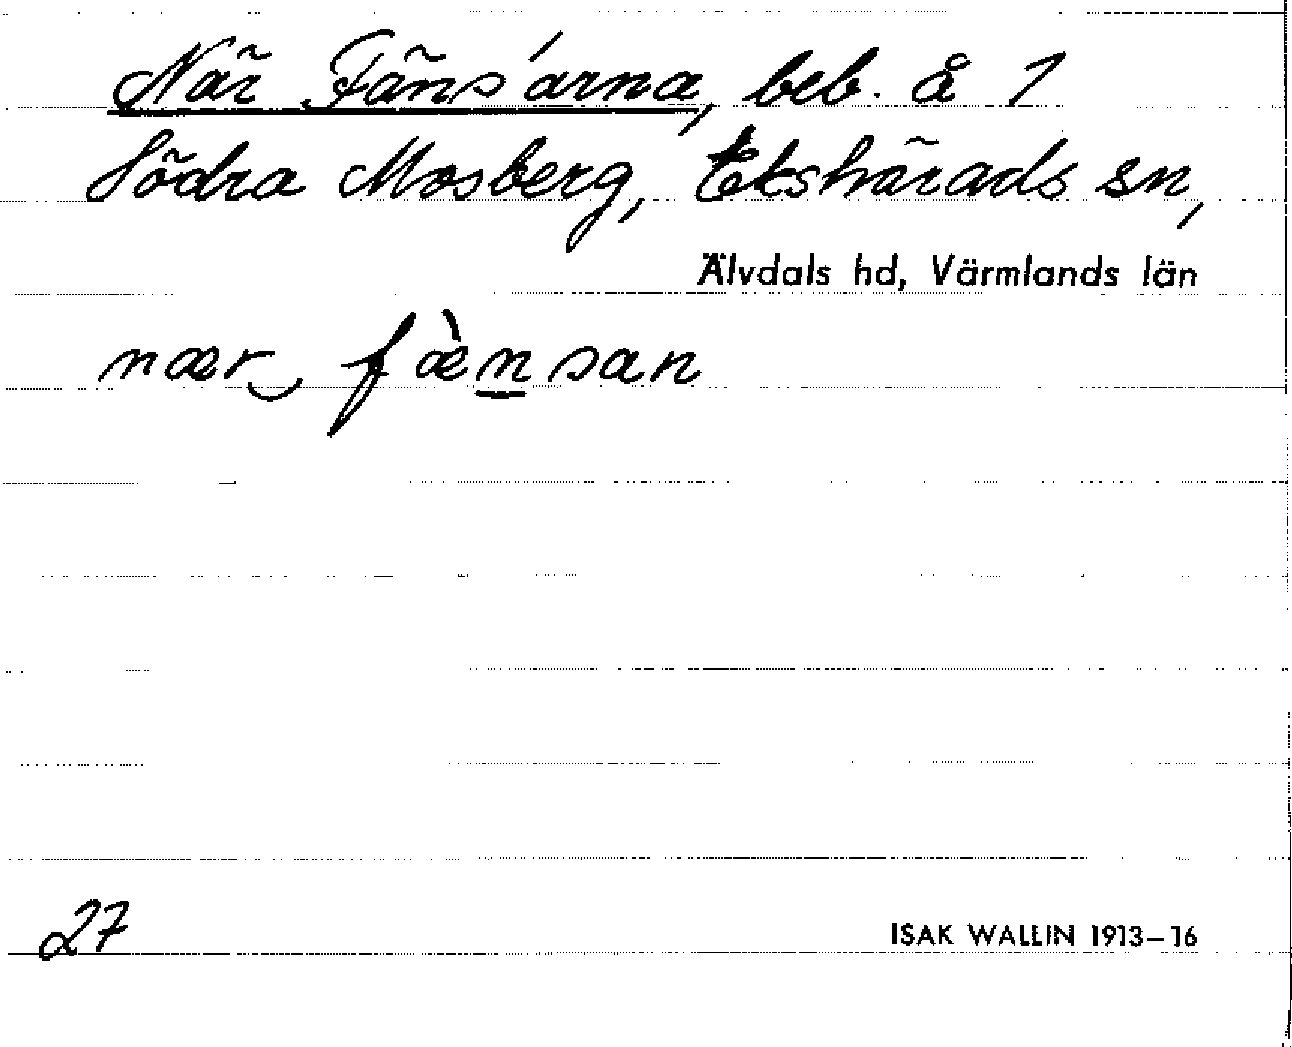 När Fäns'arna, beb. å 1
Södra Mosberg, Ekshärads sn,
Älvdals hd, Värmlands län
nær fæ̀nsan
27
ISAK WALLIN 1913–16